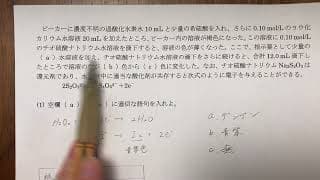 ビーカーに濃度不明の過酸化水素水 10 mL と少量の希硫酸を入れ、さらに 0.10 mol/L のヨウ化
カリウム水溶液 20 mL を加えたところ、ビーカー内の溶液が褐色になった。この溶液に 0.10 mol/L
のチオ硫酸ナトリウム水溶液を滴下すると、溶液の色が薄くなった。ここで、指示薬として少量の
( a )水溶液を加え、チオ硫酸ナトリウム水溶液の滴下をさらに続けると、合計 12.0 mL 滴下し
たところで溶液の ( b )色から( c )色に変化した。なお、チオ硫酸ナトリウム Na₂S₂O₃は
還元剤であり、水 中に適当な酸化剤が共存すると次式のように電子を与えることができる。
2S₂O + 2e⁻
(1) 空欄 ( a ) に適切な語句を入れよ。
H₂O₂ → 2H₂O a. デンプン
→ I₂ + 2e b. 青紫
青紫色 c. 無